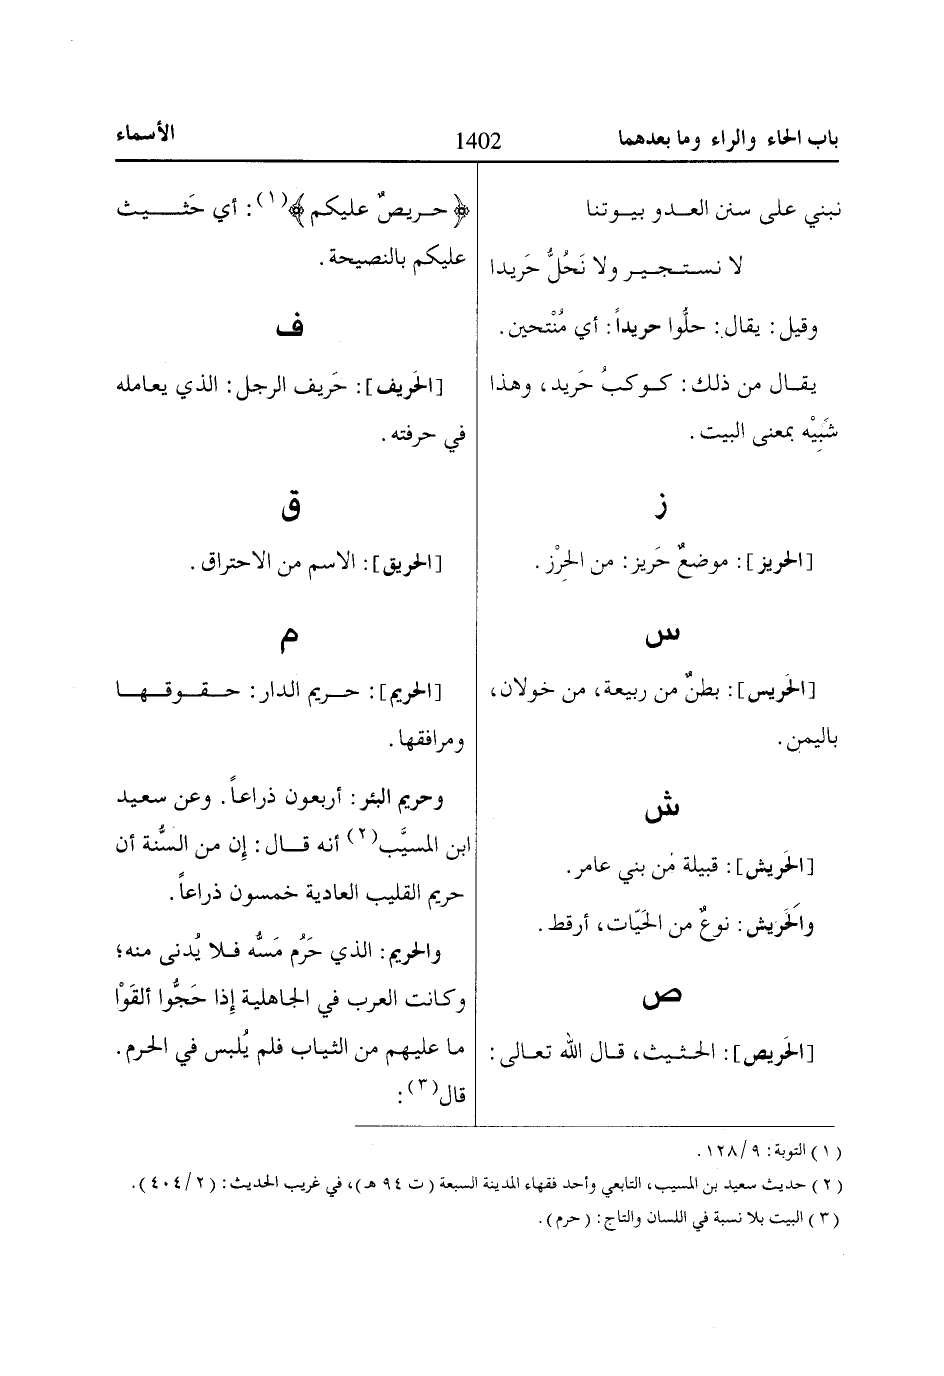 باب الحاء والراء وما بعدهما 1402 الأسماء
نبني على سنن العدو بيوتنا
لا نستجير ولا نَحُلُّ حَريدا
وقيل: يقال: حلُّوا حريداً: أي مُنْتحين.
يقال من ذلك: كوكبُ حَريد، وهذا
شَبِيْه بمعنى البيت.
ز
[الحريز]: موضعٌ حَريز: من الحِرْز.
س
[الحَريس]: بطنٌ من ربيعة، من خولان،
باليمن.
ش
[الحَريش]: قبيلة من بني عامر.
والحَريش: نوعٌ من الحَيّات، أرقط.
ص
[الحَريص]: الحثيث، قال الله تعالى:
﴿حريصٌ عليكم﴾(١): أي حَثيث
عليكم بالنصيحة.
ف
[الحَريف]: حَريف الرجل: الذي يعامله
في حرفته.
ق
[الحريق]: الاسم من الاحتراق.
م
[الحريم]: حريم الدار: حقوقها
ومرافقها.
وحريم البئر: أربعون ذراعاً. وعن سعيد
ابن المسيَّب(٢) أنه قال: إن من السُّنة أن
حريم القليب العادية خمسون ذراعاً.
والحريم: الذي حَرُم مَسُّه فلا يُدنى منه؛
وكانت العرب في الجاهلية إذا حَجُّوا ألقَوْا
ما عليهم من الثياب فلم يُلبس في الحرم.
قال(٣):
(١) التوبة: ٩/١٢٨.
(٢) حديث سعيد بن المسيب، التابعي وأحد فقهاء المدينة السبعة (ت ٩٤ هـ)، في غريب الحديث: (٢/٤٠٤).
(٣) البيت بلا نسبة في اللسان والتاج: (حرم).